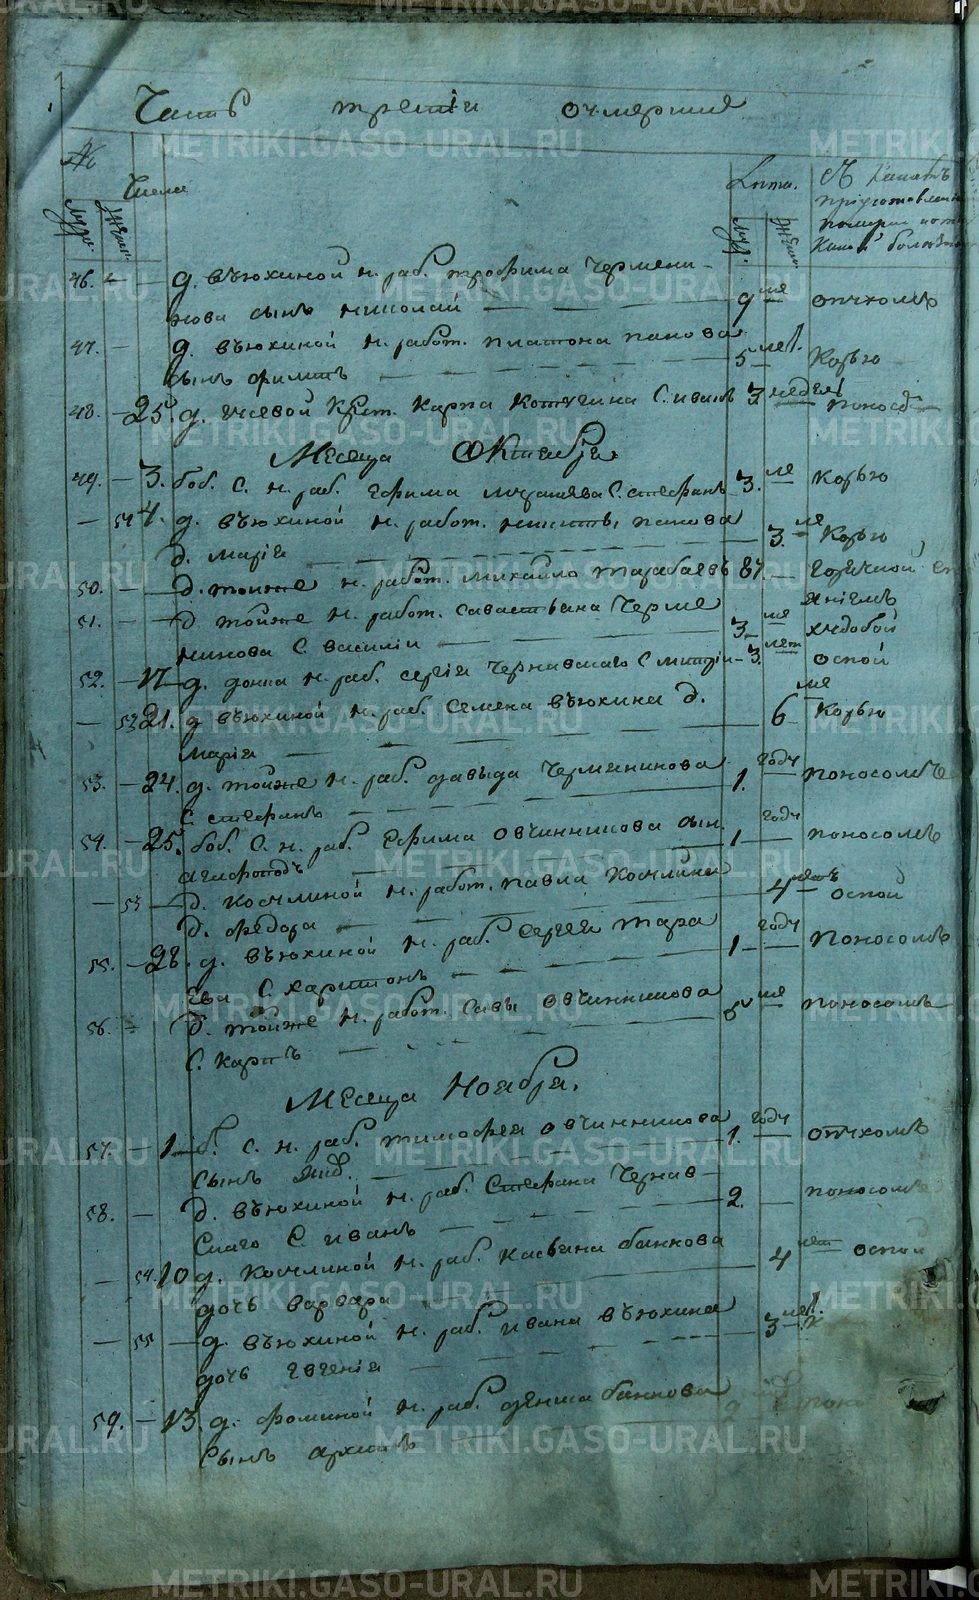 Часть третія о умершие
№
Числа
Лѣта.
Съ
муж:
Женс:
муж:
Женс:
приготовленіи
померли и от
Какой болѣзни
46. д. вьюхиной н. раб. трофима Чермени-
нова сынъ николай 9 ме опухомъ
47. — д. вьюхиной н. работ. платона панова
сынъ филипъ 5 мес. Корью
48. — 25. д. гусевой Крест. Карпа Котугина С. иванъ 3 недели поносо
Месяца Октября
49. — 3. боб. С. н. раб. ефима С. стефанъ 3. ме Корью
— 51 4. д. вьюхиной н. работ. никиты панова
д. марія 3. ме Корью
50. — д. тойже н. работ. михайло тарабаевъ 87. — горячкой
51. — д тойже н. работ. савастьяна Черме
нинова С. василіи 3 ме худобой
52. — 17 д. н. раб. сергія Чернавскаго С митріи 3. лет оспой
— 52 21. д вьюхиной н. раб. семена вьюхина д.
марія 6 ме Корью
53. — 24. д. тойже н. раб. давыда Черменинова
С. стефанъ 1. году поносомъ
54. — 25. боб. С. н. раб. Ефима овчинникова сын.
агафоподъ 1 году поносомъ
— 53 — д. Кочлиной н. работ. павла Кочлина
д. федора 4 летъ оспой
55. — 28. д. вьюхиной н. раб. сергея тара
ева С. харитонъ 1 году Поносомъ
56. д. тойже н. работ. савы овчинникова
С. карпъ 5 ме поносомъ
Месяца Ноября.
57. — 1 — б. С. н. раб. тимофея овчинникова
сынъ 1. году опухомъ
58. — д. вьюхиной н. раб. Стефана Чернав-
скаго С. иванъ 2. поносомъ
— 54. 10 д. Кочлиной н. раб. касьяна банкова
дочь варвара 4 лет оспой
— 55 — д. вьюхиной н. раб. ивана вьюхина
дочь евгенія 3 мес.
59. — 13. д. фоминой н. раб. дениса банкова
сынъ архипъ 2
METRIKI.GASO-URAL.RU